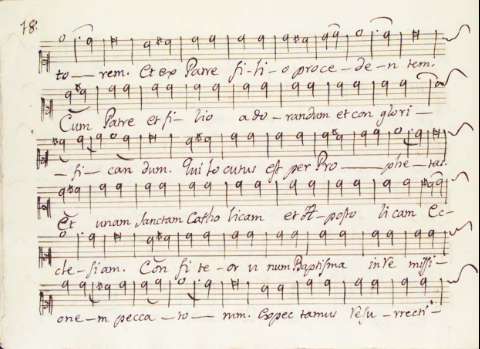 78.
to — rem. Et ex Patre fi-li-o proce-de-n tem.
Cum Patre et fi-lio ado-randum et con glori-
-fi-can dum. Qui locutus est per Pro — phe-tas.
Et unam Sanctam Catho licam et A-posto licam Ec-
cle-siam. Con fi te-or u num Baptisma in Re missi-
one-m pecca-to-rum. Expec tamus Resu-rrecti-